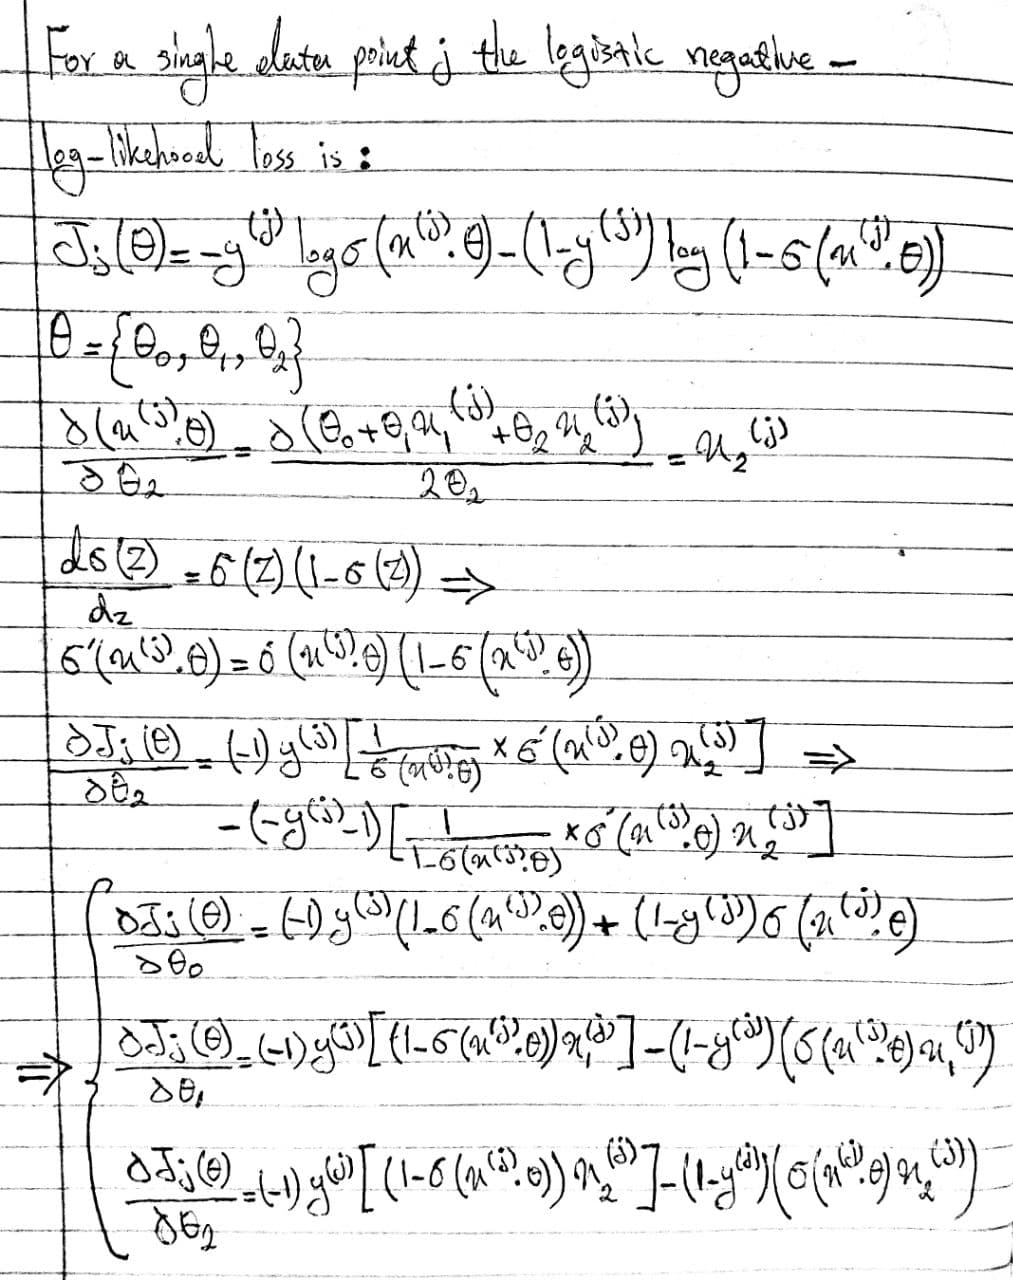 For a single data point j the logistic negative -
log-likehood loss is :
J_j(θ)=-y^(j) log σ(x^(j).θ)-(1-y^(j)) log (1-σ(x^(j).θ))
θ={θ_0, θ_1, θ_2}
∂(x^(j).θ)/∂θ_2 = ∂(θ_0+θ_1x_1^(j)+θ_2x_2^(j))/2θ_2 = x_2^(j)
dσ(z)/dz = σ(z)(1-σ(z)) ⇒
σ'(x^(j).θ)=σ(x^(j).θ)(1-σ(x^(j).θ))
∂J_j(θ)/∂θ_2 = (-1)y^(j)[1/σ(x^(j).θ) × σ'(x^(j).θ) x_2^(j)] ⇒
-(-y^(j)-1)[1/1-σ(x^(j).θ) × σ'(x^(j).θ) x_2^(j)]
∂J_j(θ)/∂θ_0 = (-1)y^(j)(1-σ(x^(j).θ)) + (1-y^(j))σ(x^(j).θ)
⇒ { ∂J_j(θ)/∂θ_1 = (-1)y^(j)[(1-σ(x^(j).θ))x_1^(j)]-(1-y^(j))(σ(x^(j).θ)x_1^(j))
∂J_j(θ)/∂θ_2 = (-1)y^(j)[(1-σ(x^(j).θ))x_2^(j)]-(1-y^(j))(σ(x^(j).θ)x_2^(j))